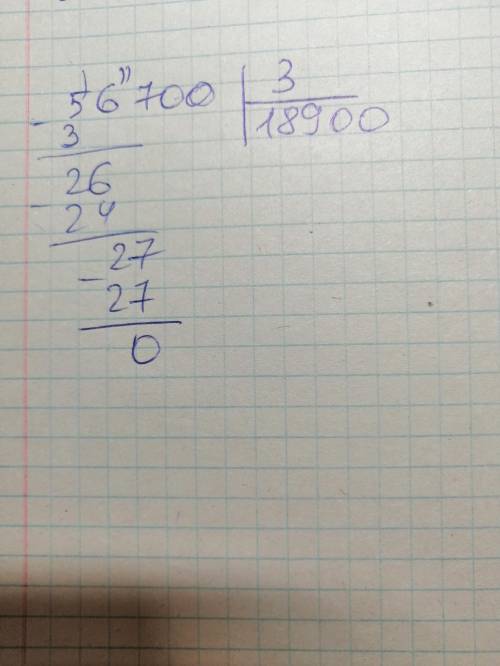 56700 3
3 18900
26
24
27
27
0